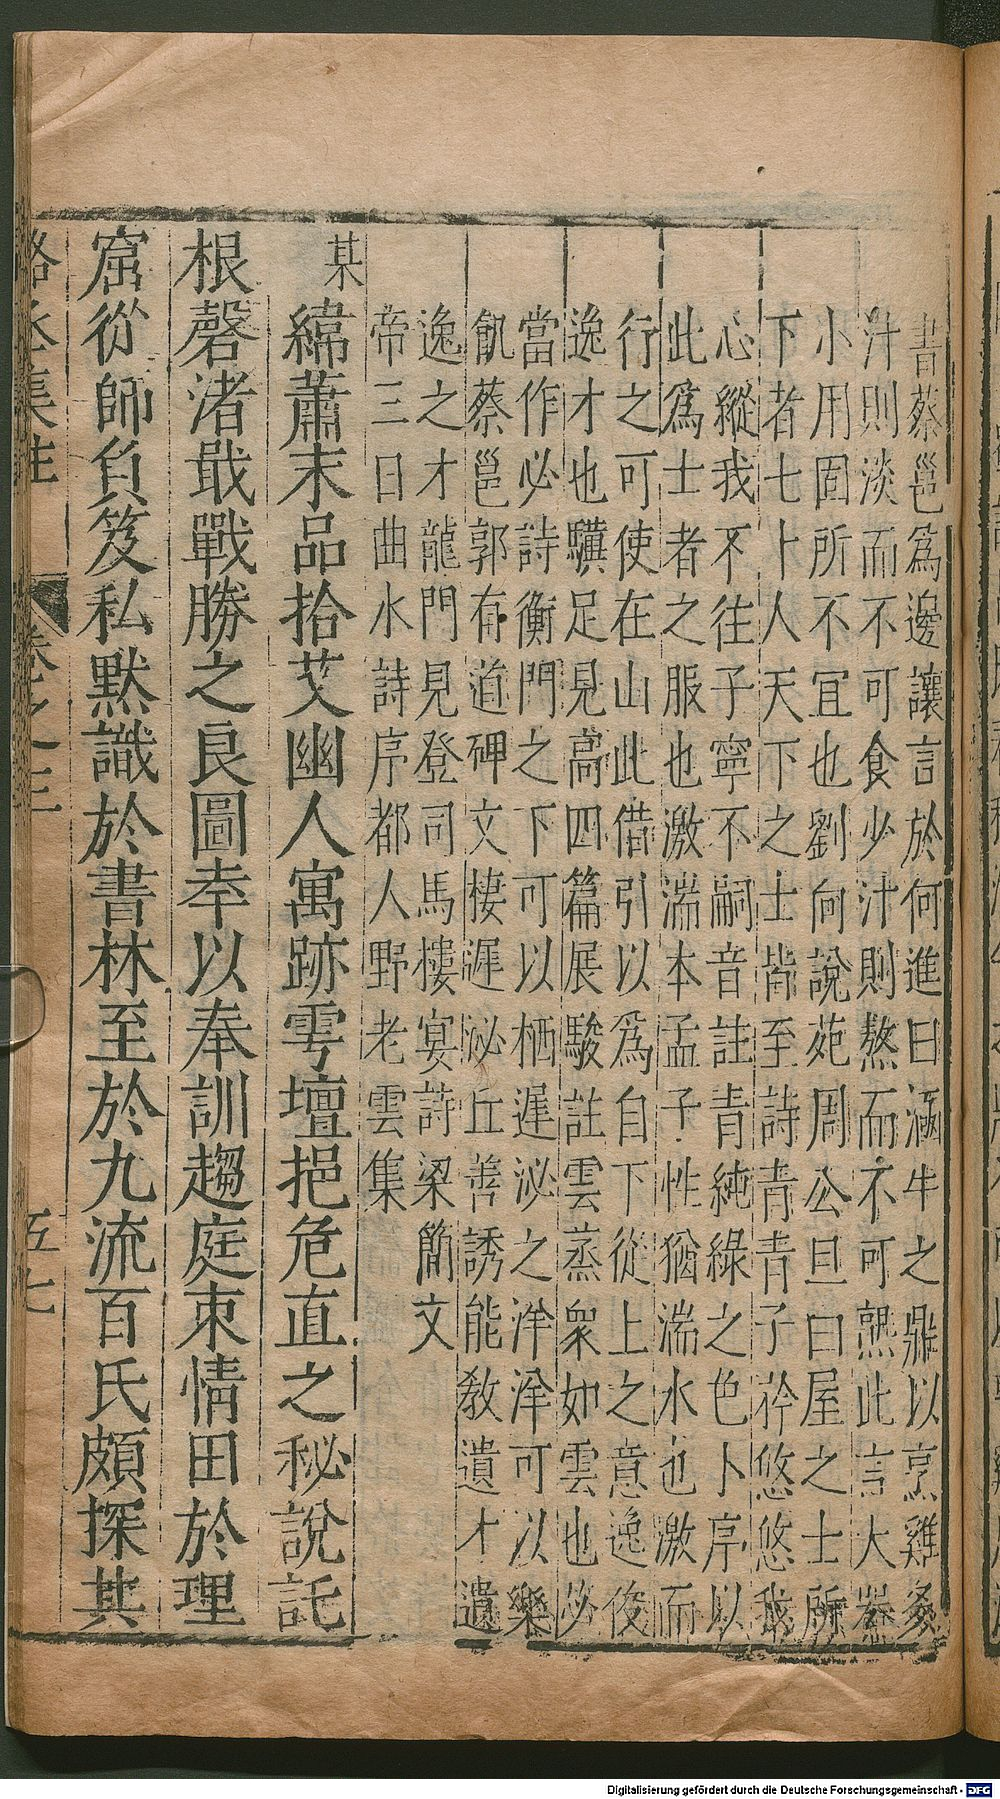 書蔡邕爲邊讓言於何進曰涵牛之鼎以烹雞多
汁則淡而不可食少汁則熬而不可熟此言大器
小用固所不宜也劉向說苑周公旦曰屋之士所
下者七十人天下之士皆至詩青青子衿悠悠我
心縱我不往子寧不嗣音註青純綠之色卜序以
此爲士者之服也激湍本孟子性猶湍水也激而
行之可使在山此借引以爲自下從上之意逸俊
逸才也驥足見高四篇展駿註雲蒸衆如雲也必
當作必詩衡門之下可以栖遲泌之洋洋可以樂
飢蔡邕郭有道碑文棲遲泌丘善誘能敎遺才遺
逸之才龍門見登司馬樓宴詩梁簡文
帝三日曲水詩序都人野老雲集
某緯蕭末品拾艾幽人寓跡雩壇挹危直之秘說託
根磬渚戢戰勝之良圖幸以奉訓趨庭束情田於理
窟從師負笈私默識於書林至於九流百氏頗探其
駱丞集註 卷之三 五七
Digitalisierung gefördert durch die Deutsche Forschungsgemeinschaft - DFG